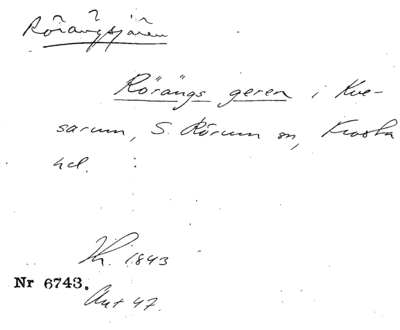 Rörängsjären
Rörängs geren i Kve-
sarum, S. Rörum sn, Frosta
hd.
Kr. 1843
Nr 6743.
Ant 47.